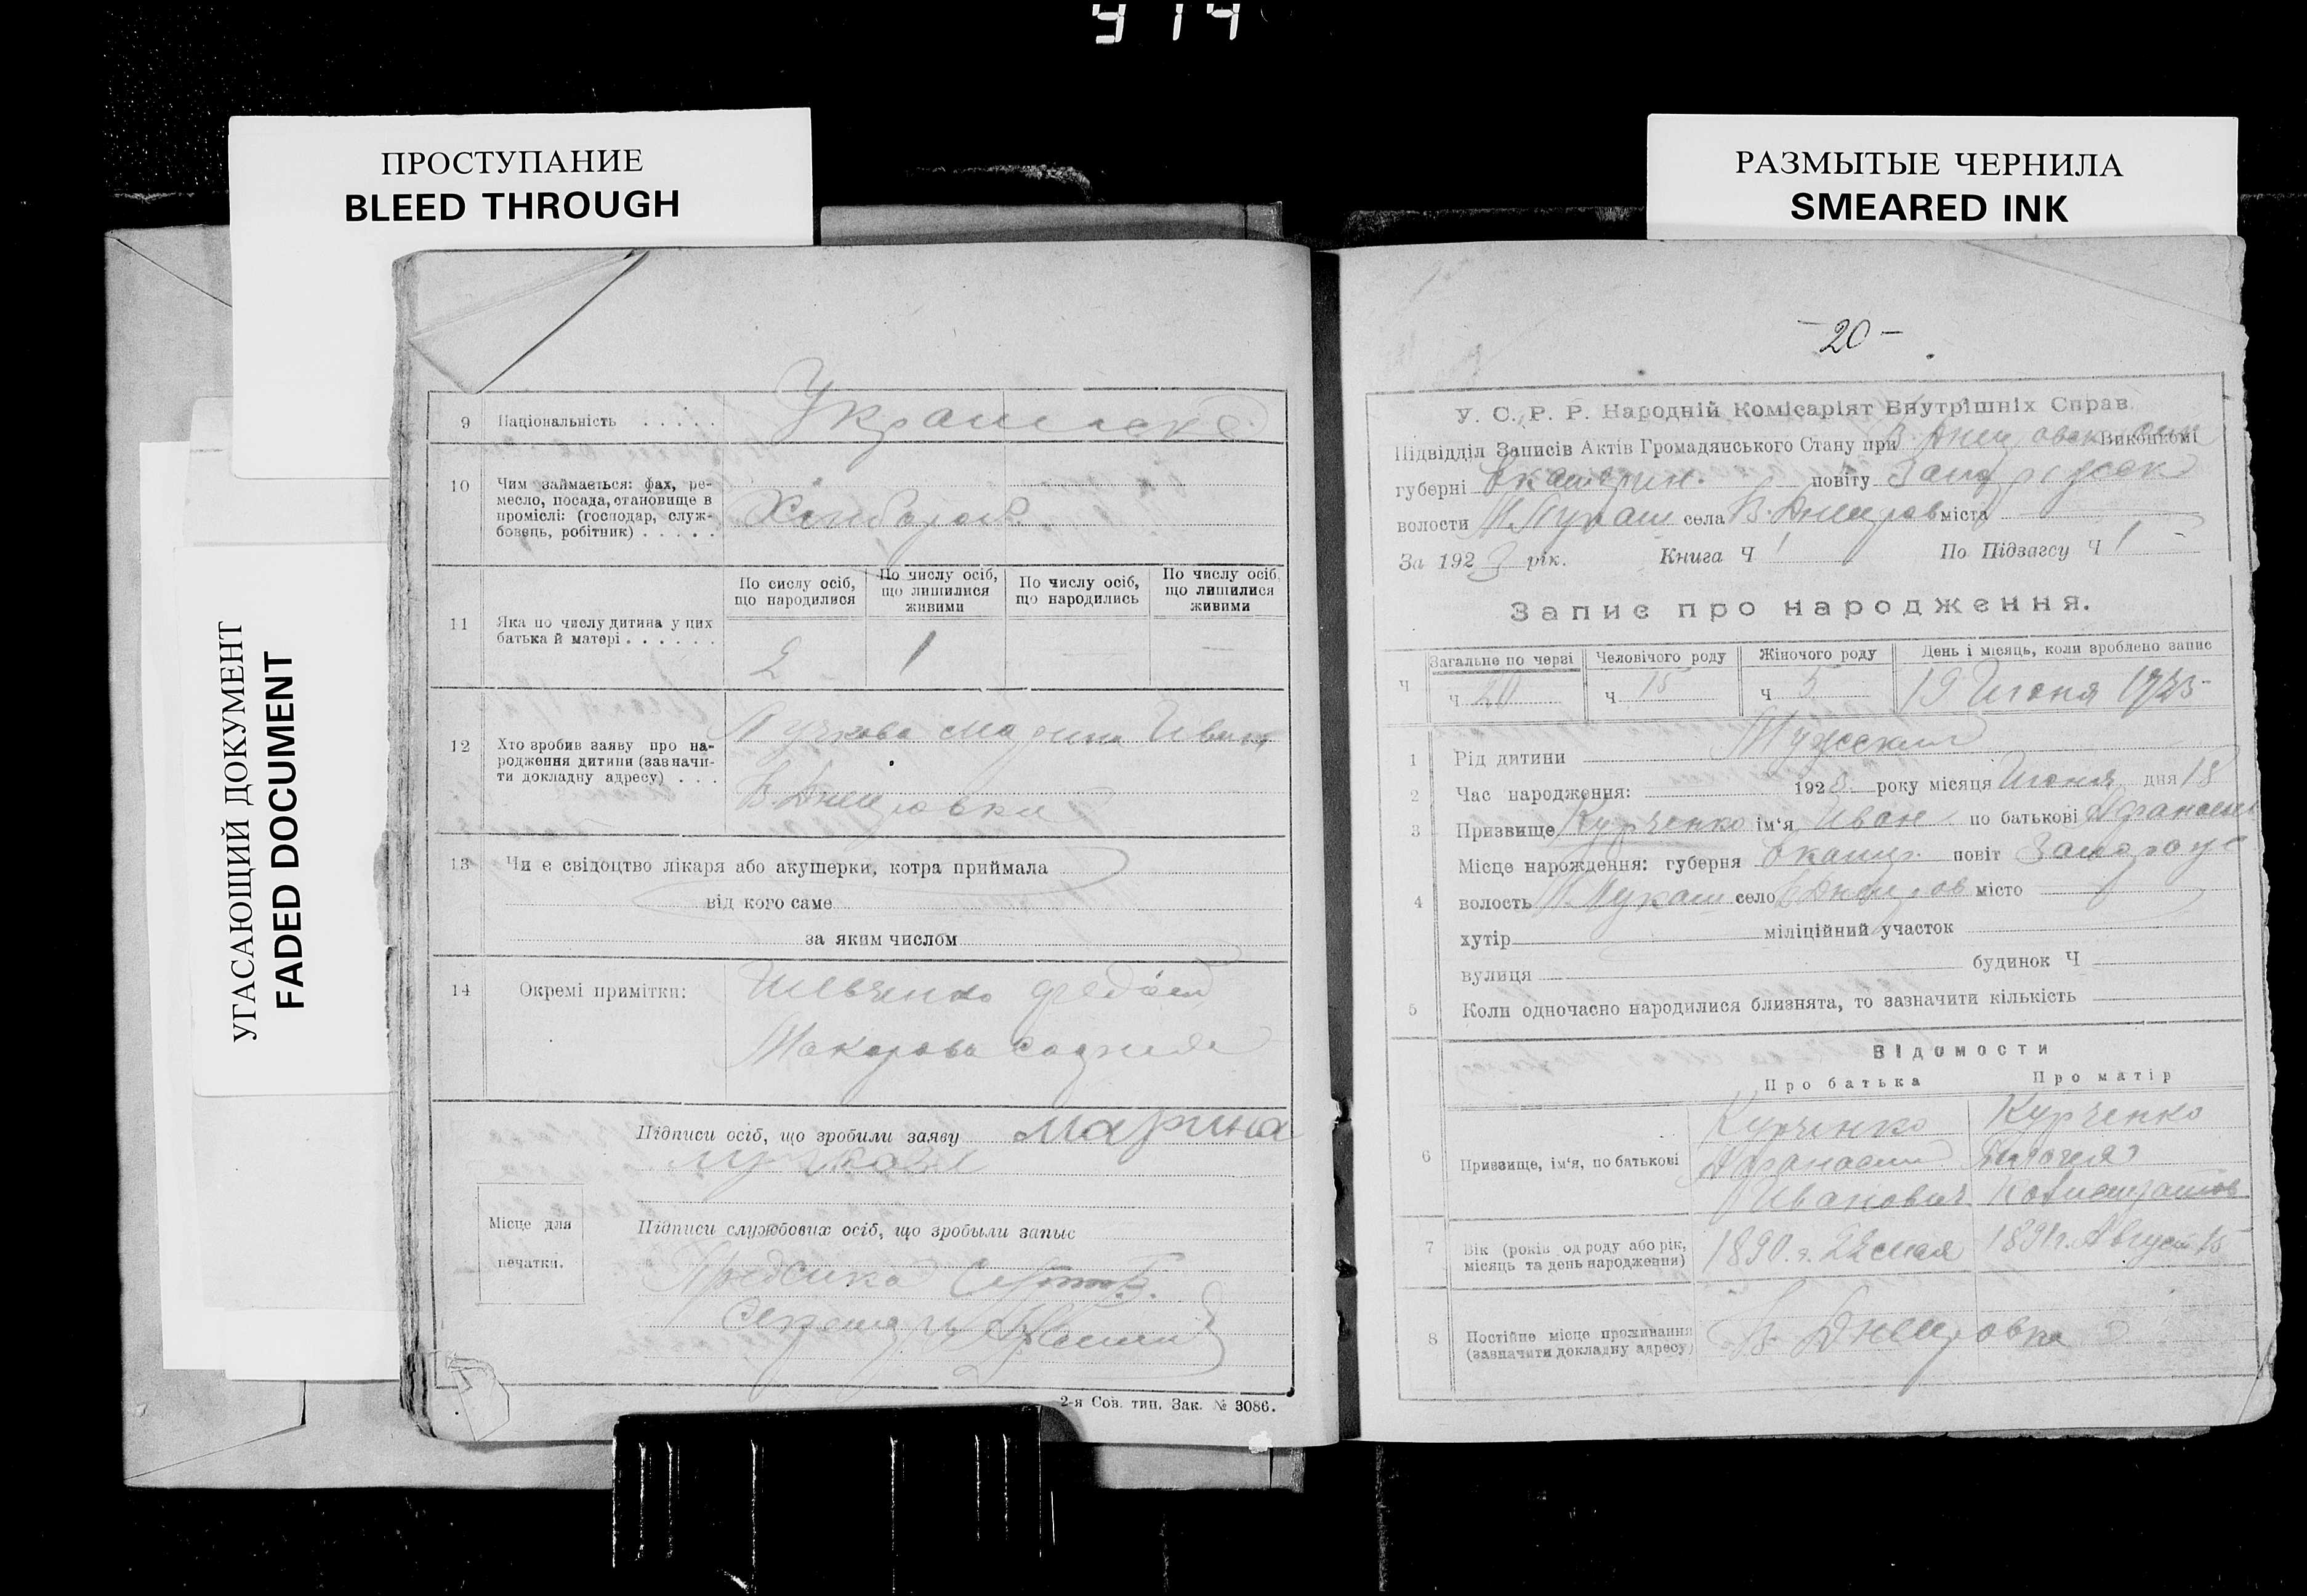 914
ПРОСТУПАНИЕ
BLEED THROUGH
РАЗМЫТЫЕ ЧЕРНИЛА
SMEARED INK
УГАСАЮЩИЙ ДОКУМЕНТ
FADED DOCUMENT
9 Національність . . . . .
10 Чим займається: фах, ре-
месло, посада, становище в
проміслі: (господар, служ-
бовець, робітник) . . . . .
Хлибороб
11 Яка по числу дитина у цих
батька й матері . . . . . .
По сислу осіб,
що народилися
По числу осіб,
що лишилися
живими
По числу осіб,
що народились
По числу осіб
що лишилися
живими
2 1 — —
12 Хто зробив заяву про на-
родження дитини (зазначи-
ти докладну адресу) . . .
Марина Иван
В. Днепровки
13 Чи є свідоцтво лікаря або акушерки, котра приймала
від кого саме
за яким числом
14 Окремі примітки:
Шевченко
Макарова
Підписи осіб, що зробили заяву Марина
Місце для
печатки.
Підписи службових осіб, що зробыли запыс
Секретарь
2-я Сов. тип. Зак. № 3086.
— 20 —
У. С. Р. Р. Народній Комісаріят Внутрішніх Справ.
Підвідділ Записів Актів Громадянського Стану при В. Днепровск Виконкомі
губерні Екатерин. повіту Запорожск
волости села В. Днепров міста
За 1923 рік. Книга Ч 1 По Підзагсу Ч 1
Запис про народження.
Ч Загальне по черзі Человічого роду Жіночого роду День і місяць, коли зроблено запис
ч 20 ч 15 ч 5 19 Июня 1923
1 Рід дитини Мужский
2 Час народження: 1923 року місяця Июня дня 18
3 Призвище Курченко ім'я Иван по батькові Афанасьев
Місце нарождення: губерня Екатер. повіт Запорож
4 волость село В Днепров місто
хутір міліційний участок
вулиця будинок Ч
5 Коли одночасно народилися близнята, то зазначити кількість
Відомости
Про батька Про матір
6 Призвище, ім'я, по батькові
Курченко
Афанасий
Иванович
Курченко
7 Вік (років од роду або рік,
місяць та день народження)
1890 г. 22 мая 1891 г. Август 15
8 Постійне місце проживання
(зазначити докладну адресу)
В. Днепровка